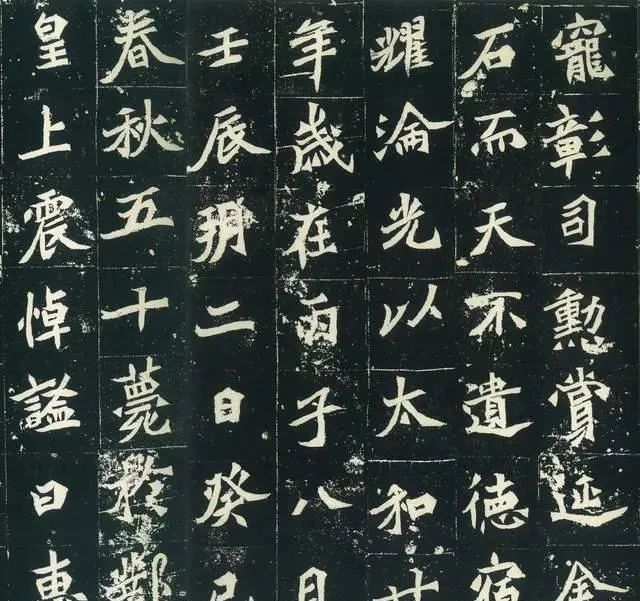 寵彰司勳賞延金
石而天不遺德宿
耀淪光以太和廿
年歲在丙子八月
壬辰朔二日癸巳
春秋五十薨於鄴
皇上震悼謚曰惠